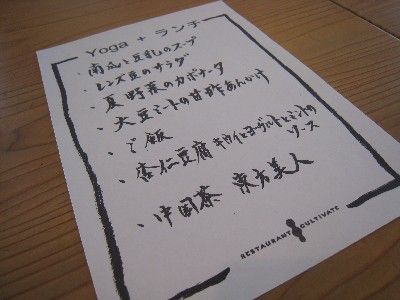 Yoga + ランチ
・南瓜と豆乳のスープ
・レンズ豆のサラダ
・夏野菜のカポナータ
・大豆ミートの甘酢あんかけ
・ご飯
・杏仁豆腐 キウイとヨーグルトとミントの
ソース
・中国茶 東方美人
RESTAURANT CULTIVATE